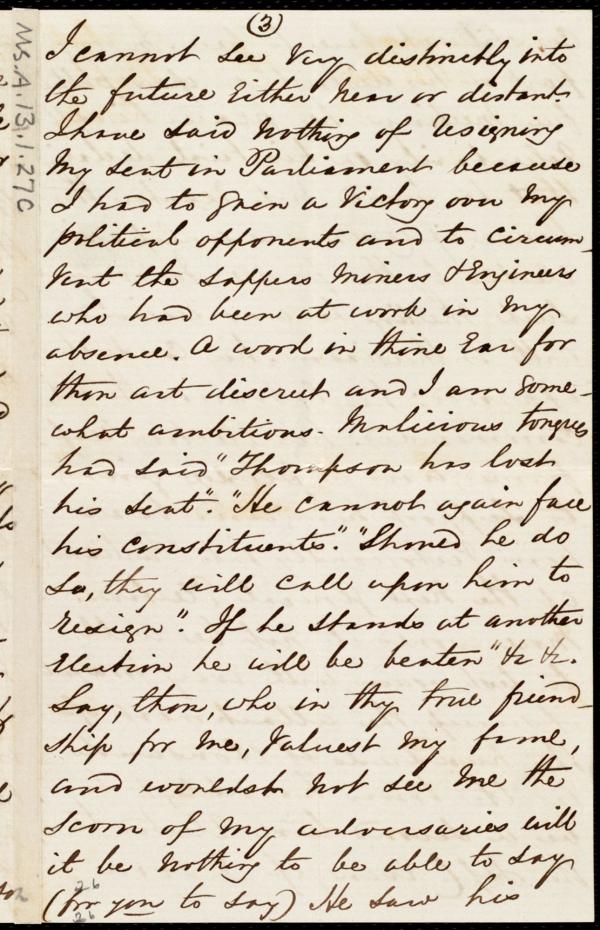 (3)
Ms.A.1.3.1.27C
I cannot see very distinctly into
the future either near or distant.
I have said nothing of resigning
my seat in Parliament because
I had to gain a victory over my
political opponents and to circum-
vent the sappers miners & Engineers
who had been at work in my
absence. A word in thine Ear for
thou art discreet and I am some-
what ambitious. Malicious tongues
had said "Thompson has lost
his seat". "He cannot again face
his constituents". "Should he do
so, they will call upon him to
resign". If he stands at another
Election he will be beaten" &c &c.
Say, thou, who in thy true friend-
ship for me, valuest my fame,
and wouldst not see me the
scorn of my adversaries will
it be nothing to be able to say
(for you to say) He saw his
26
26